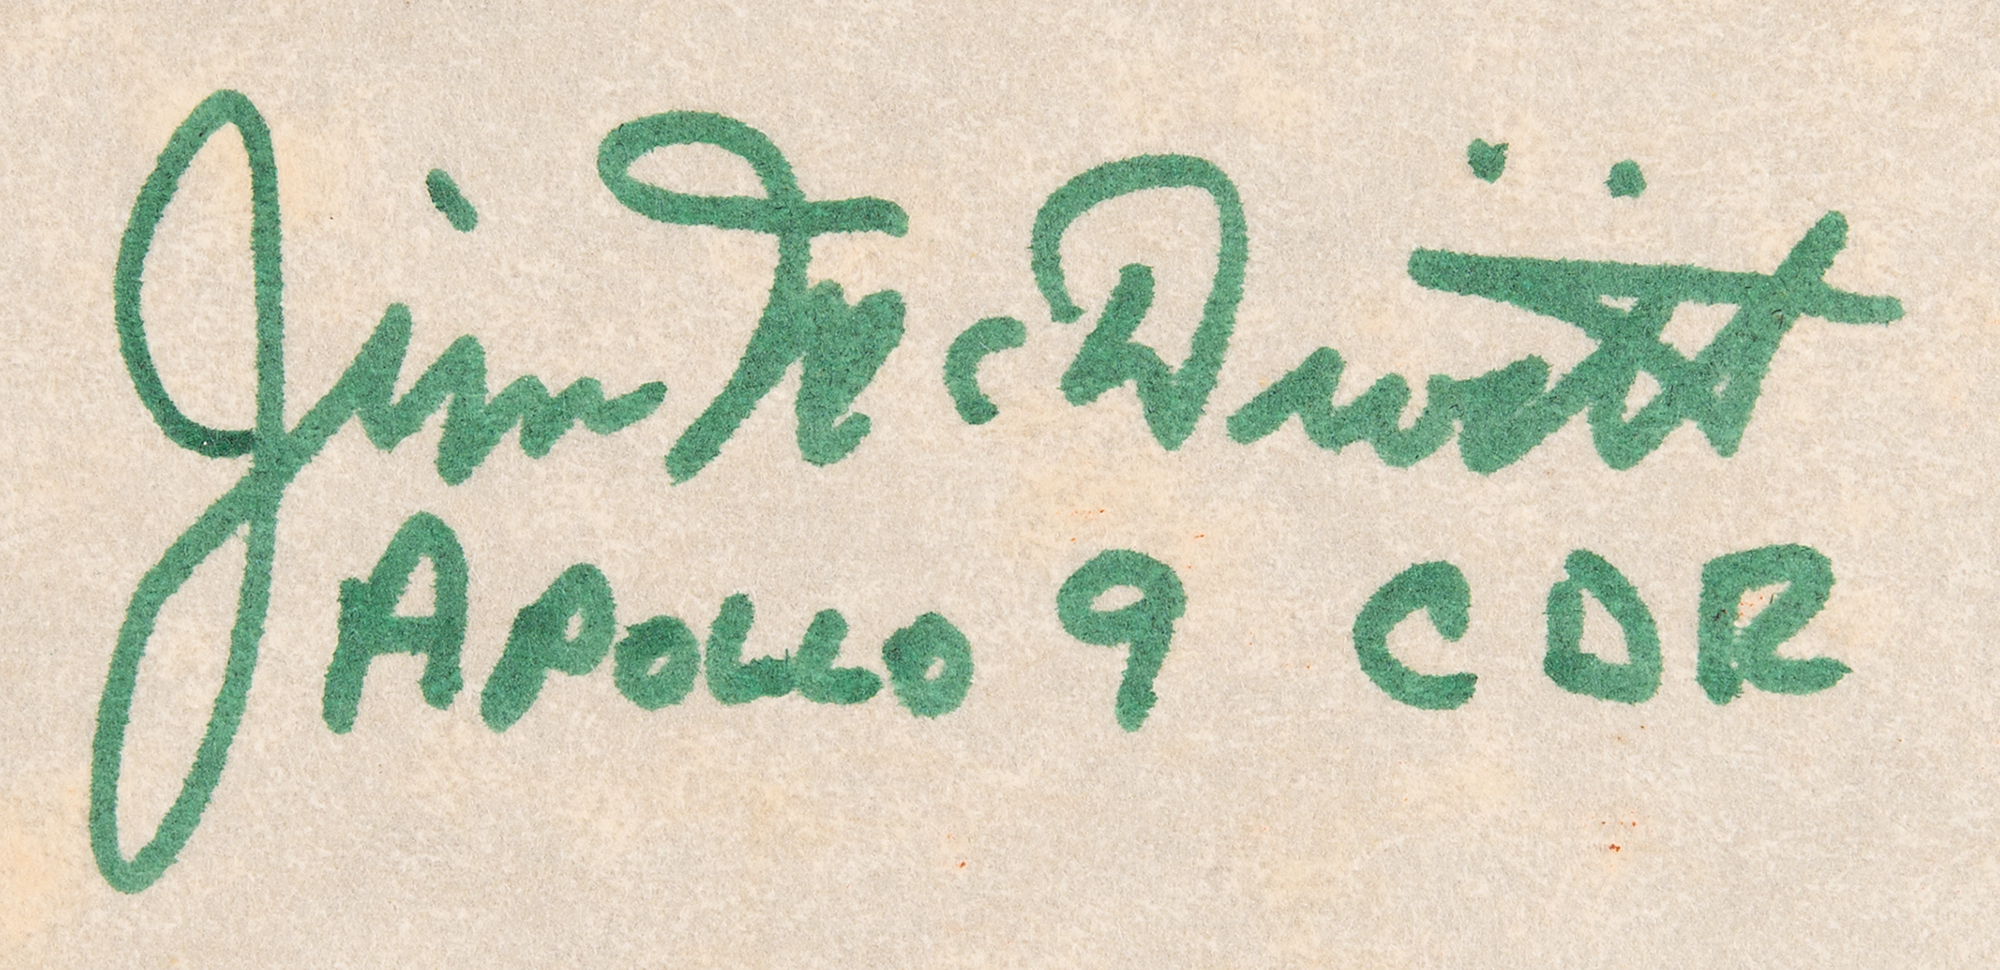 Jim McDivitt
APOLLO 9 CDR